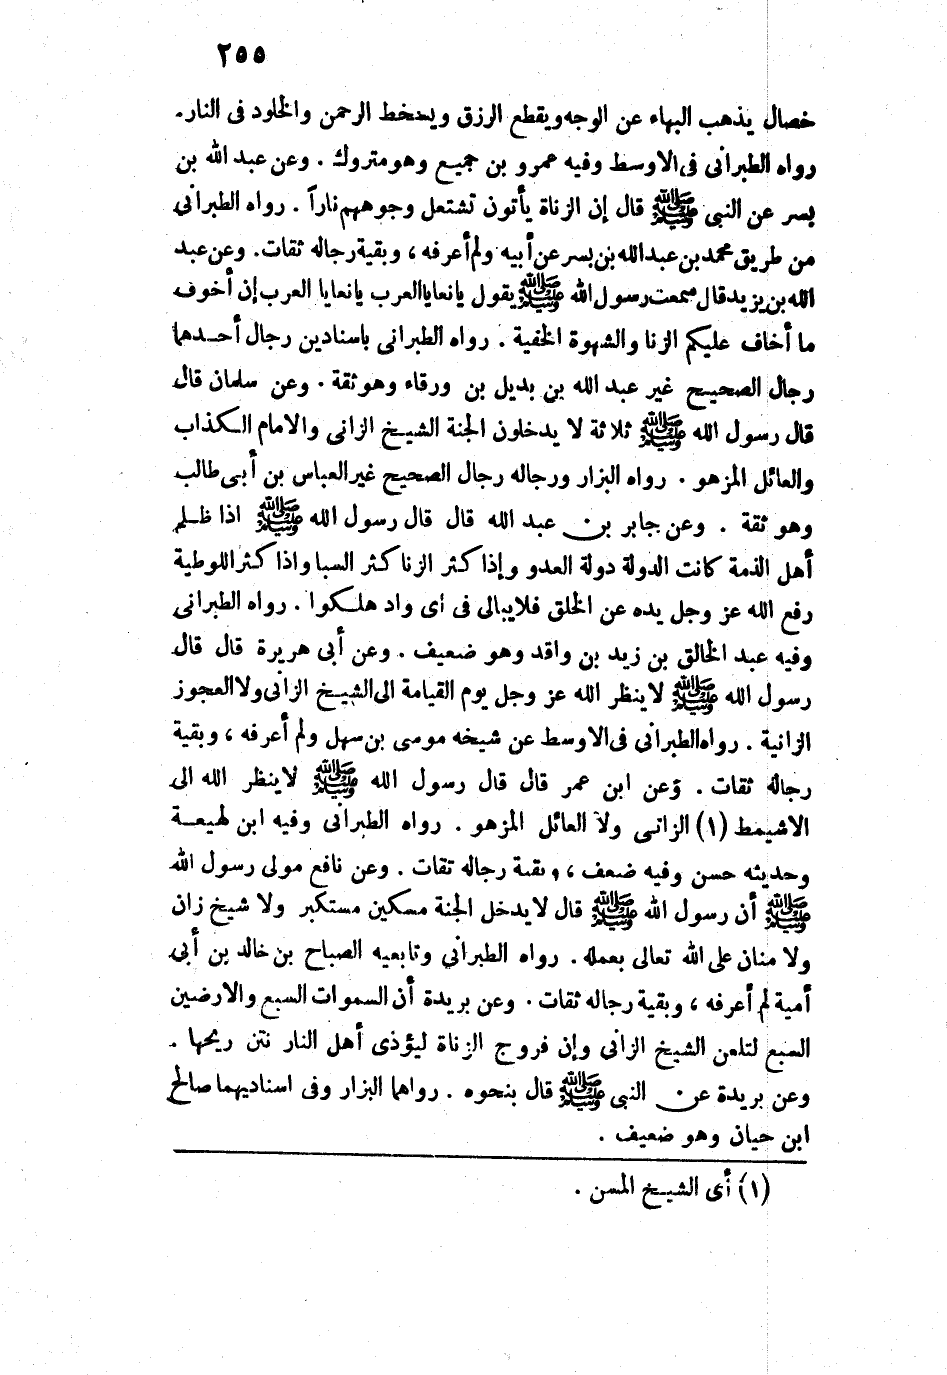 ٢٥٥
خصال يذهب البهاء عن الوجه ويقطع الرزق ويسخط الرحمن والخلود فى النار .
رواه الطبرانى فى الاوسط وفيه عمرو بن جميع وهو متروك . وعن عبد الله بن
بسر عن النبى ﷺ قال إن الزناة يأتون تشتعل وجوههم ناراً . رواه الطبرانى
من طريق محمد بن عبد الله بن بسر عن أبيه ولم أعرفه ، وبقية رجاله ثقات. وعن عبد
الله بن يزيد قال سمعت رسول الله ﷺ يقول يانعايا العرب يانعايا العرب إن أخوف
ما أخاف عليكم الزنا والشهوة الخفية . رواه الطبرانى باسنادين رجال أحدهما
رجال الصحيح غير عبد الله بن بديل بن ورقاء وهو ثقة . وعن سلمان قال
قال رسول الله ﷺ ثلاثة لا يدخلون الجنة الشيخ الزانى والامام الكذاب
والعائل المزهو . رواه البزار ورجاله رجال الصحيح غير العباس بن أبى طالب
وهو ثقة . وعن جابر بن عبد الله قال قال رسول الله ﷺ اذا ظلم
أهل الذمة كانت الدولة دولة العدو وإذا كثر الزنا كثر السبا واذا كثر اللوطية
رفع الله عز وجل يده عن الخلق فلايبالى فى أى واد هلكوا . رواه الطبرانى
وفيه عبد الخالق بن زيد بن واقد وهو ضعيف . وعن أبى هريرة قال قال
رسول الله ﷺ لا ينظر الله عز وجل يوم القيامة الى الشيخ الزانى ولا العجوز
الزانية . رواه الطبرانى فى الاوسط عن شيخه موسى بن سهل ولم أعرفه ، وبقية
رجاله ثقات . وعن ابن عمر قال قال رسول الله ﷺ لا ينظر الله الى
الاشيمط (١) الزانى ولا العائل المزهو . رواه الطبرانى وفيه ابن لهيعة
وحديثه حسن وفيه ضعف ، وبقية رجاله ثقات . وعن نافع مولى رسول الله
ﷺ أن رسول الله ﷺ قال لا يدخل الجنة مسكين مستكبر ولا شيخ زان
ولا منان على الله تعالى بعمله . رواه الطبرانى وتابعيه الصباح بن خالد بن أبى
أمية لم أعرفه ، وبقية رجاله ثقات . وعن بريدة أن السموات السبع والارضين
السبع لتلعن الشيخ الزانى وإن فروج الزناة ليؤذى أهل النار نتن ريحها .
وعن بريدة عن النبى ﷺ قال بنحوه . رواهما البزار وفى اسناديهما صالح
ابن حيان وهو ضعيف .
(١) أى الشيخ المسن .